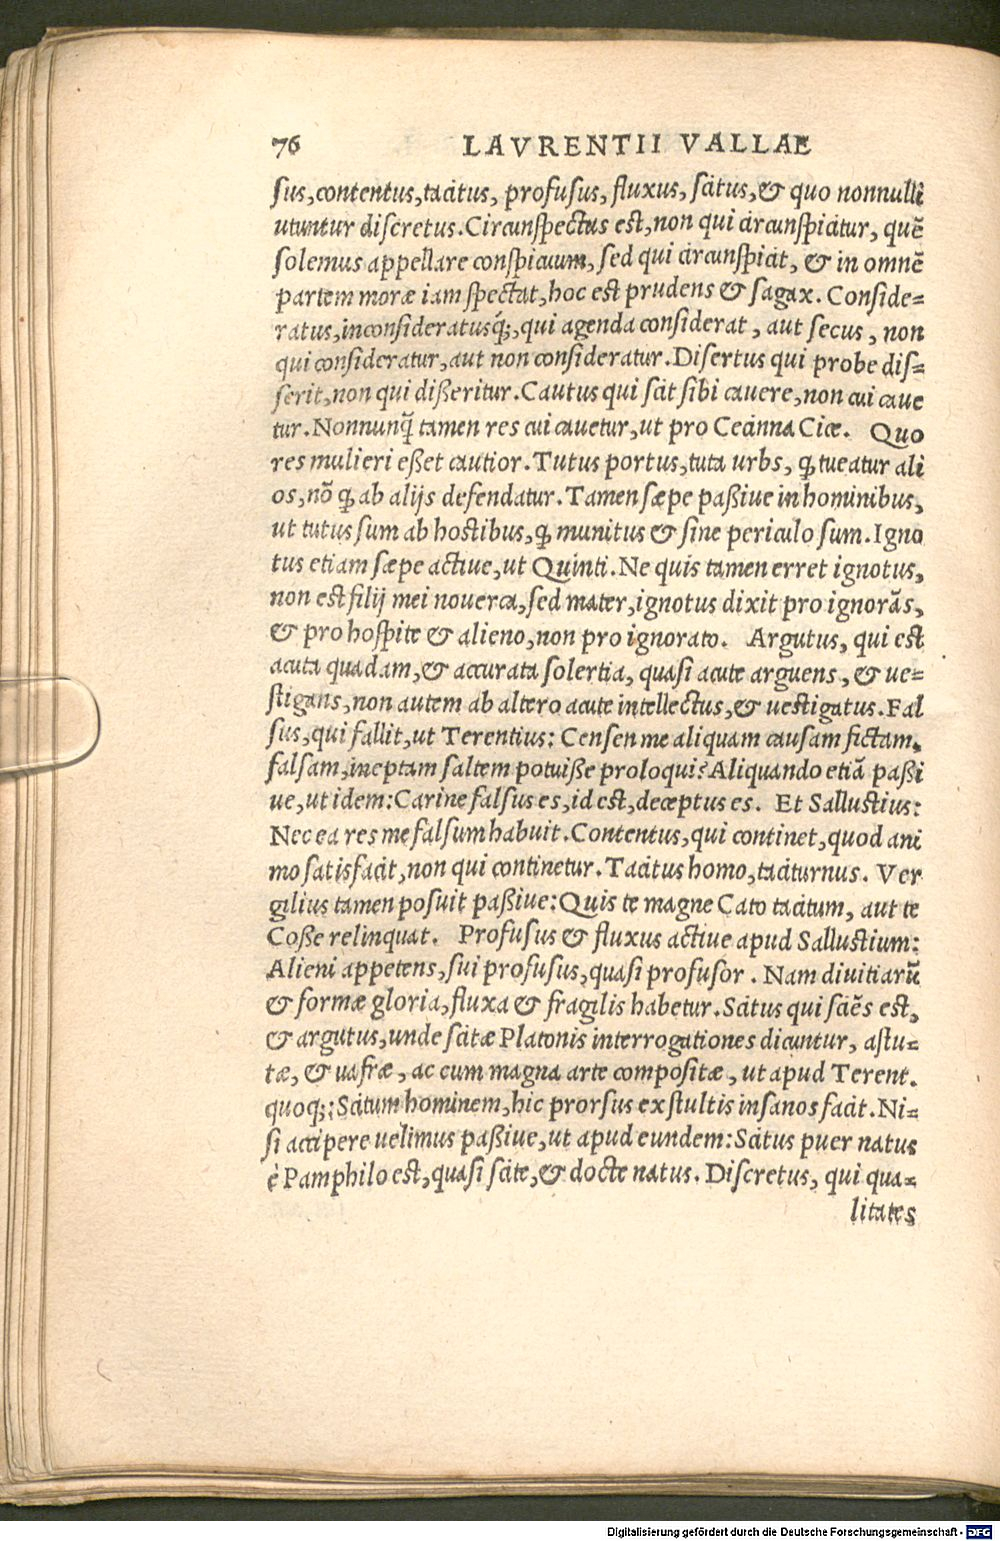 76 LAVRENTII VALLAE
ſus, contentus, tacitus, profuſus, fluxus, ſcitus, & quo nonnulli
utuntur diſcretus. Circunſpectus est, non qui circunſpicitur, quẽ
ſolemus appellare conſpicuum, ſed qui circunſpicit, & in omnẽ
partem moræ iam ſpectat, hoc est prudens & ſagax. Conſide=
ratus, inconſideratusq́;, qui agenda conſiderat, aut ſecus, non
qui conſideratur, aut non conſideratur. Diſertus qui probe diſ=
ſerit, non qui dißeritur. Cautus qui ſcit ſibi cauere, non cui caue
tur. Nonnunq̃ tamen res cui cauetur, ut pro Cecinna Cice. Quo
res mulieri eßet cautior. Tutus portus, tuta urbs, ꝙ tueatur ali
os, nõ ꝙ ab alijs defendatur. Tamen ſæpe paßiue in hominibus,
ut tutus ſum ab hostibus, ꝙ munitus & ſine periculo ſum. Igno
tus etiam ſæpe actiue, ut Quinti. Ne quis tamen erret ignotus,
non est filij mei nouerca, ſed mater, ignotus dixit pro ignorãs,
& pro hoſpite & alieno, non pro ignorato. Argutus, qui est
acuta quadam, & accurata ſolertia, quaſi acute arguens, & ue=
ſtigans, non autem ab altero acute intellectus, & uestigatus. Fal
ſus, qui fallit, ut Terentius: Cenſen me aliquam cauſam fictam,
falſam, ineptam ſaltem potuiße proloqui? Aliquando etiã paßi
ue, ut idem: Carine falſus es, id est, deceptus es. Et Sallustius:
Nec ea res me falſum habuit. Contentus, qui continet, quod ani
mo ſatisfacit, non qui continetur. Tacitus homo, taciturnus. Ver
gilius tamen poſuit paßiue: Quis te magne Cato tacitum, aut te
Coße relinquat. Profuſus & fluxus actiue apud Sallustium:
Alieni appetens, ſui profuſus, quaſi profuſor. Nam diuitiarũ
& formæ gloria, fluxa & fragilis habetur. Scitus qui ſciẽs est,
& argutus, unde ſcitæ Platonis interrogationes dicuntur, aſtu=
tæ, & uafræ, ac cum magna arte compoſitæ, ut apud Terent.
quoq;: Scitum hominem, hic prorſus ex ſtultis inſanos facit. Ni=
ſi accipere uelimus paßiue, ut apud eundem: Scitus puer natus
è Pamphilo est, quaſi ſcite, & docte natus. Diſcretus, qui qua=
litates
Digitalisierung gefördert durch die Deutsche Forschungsgemeinschaft - DFG